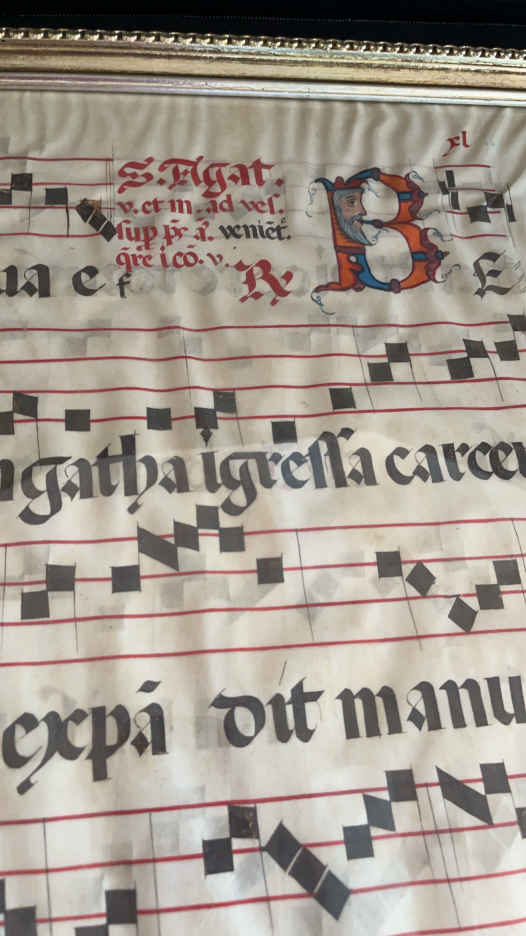 xl
S. Agat.
v. et m. ad ves.
sup pr̄ a. veniēt.
q̄re i cō. v.
ua e ℟ B E
gatha īgressa carcer
expā dit manu